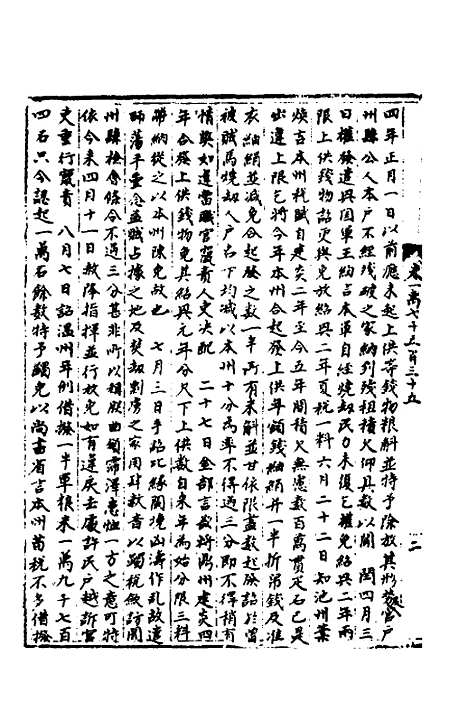 四年正月一日以前應未起上供等錢物糧斛並特予除放其形勢官戶
州縣公人本戶不經殘破之家納到殘租積欠仰具數以聞 閏四月三
日權發遣興國軍王綯言本軍自經燒劫民力未復乞權免紹興二年兩
限上供錢物詔更與免放紹興二年夏稅一料六月二十二日知池州葉
煥言本州秋賦自建炎二年至今五年閒積欠無慮數百萬貫疋石已是
出違上限乞將今年本州合起發上供年額錢紬絹并一半折帛錢及准
衣紬絹並減免合起發之數一半所有來斛並甘依限盡數起發詔於曾
被賊馬燒劫人戶名下均減以本州十分為率不得過三分即不得稍有
情弊如違當職官竄責人吏決配 二十七日金部言裁昨鼎州建炎四
年合發上供錢物免其紹興元年分尺下上供數自來年為始分限三料
帶納從之以本州陳免故也 七月三日手詔比緣闕境山濤作亂故遣
師蕩平壹念盗賊占據之地及焚劫剽虜之家因肆赦音以蠲稅斂訪聞
州縣檢會條令不過三分甚非所以稱朕曲領霈澤惠恤一方之意可特
依今來四月十一日赦降指揮並行放免如有違戾去處許民戶越訴官
吏重行竄責 八月七日詔溫州年例借撥一半軍糧米一萬九千七百
四石只令認起一萬石餘數特予蠲免以尚書省言本州苗稅不多借撥
卷一萬七千五百三十五
二